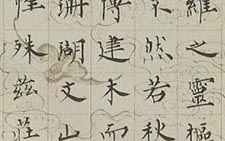 維之靈樞
不然若秋
博建木而
珊瑚文山
殊茲莊